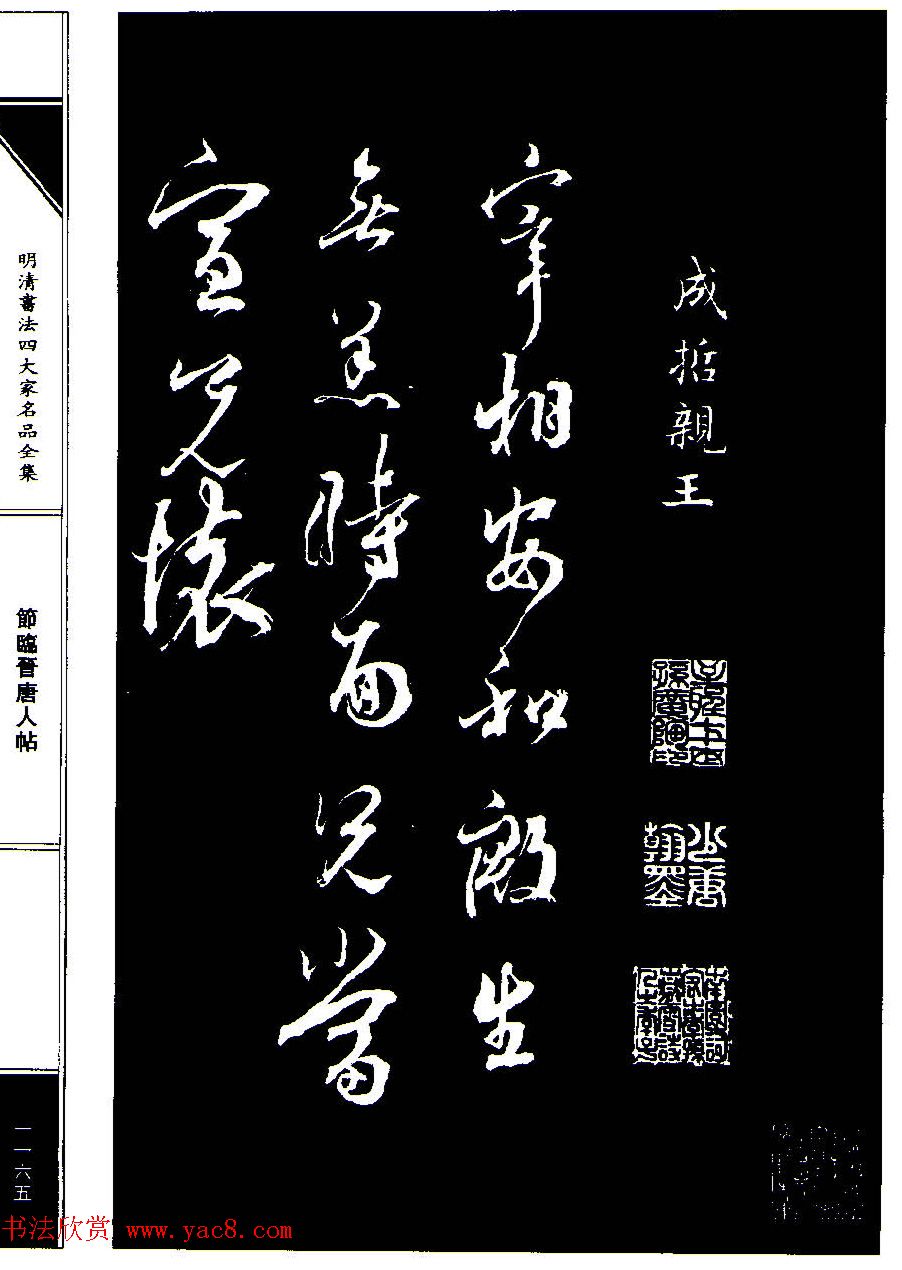 成哲親王
少唐
翰墨
宰相安和殷生
無恙時面兄當
宣兄懷
明清書法四大家名品全集
節臨晉唐人帖
一一六五
书法欣赏 www.yac8.com